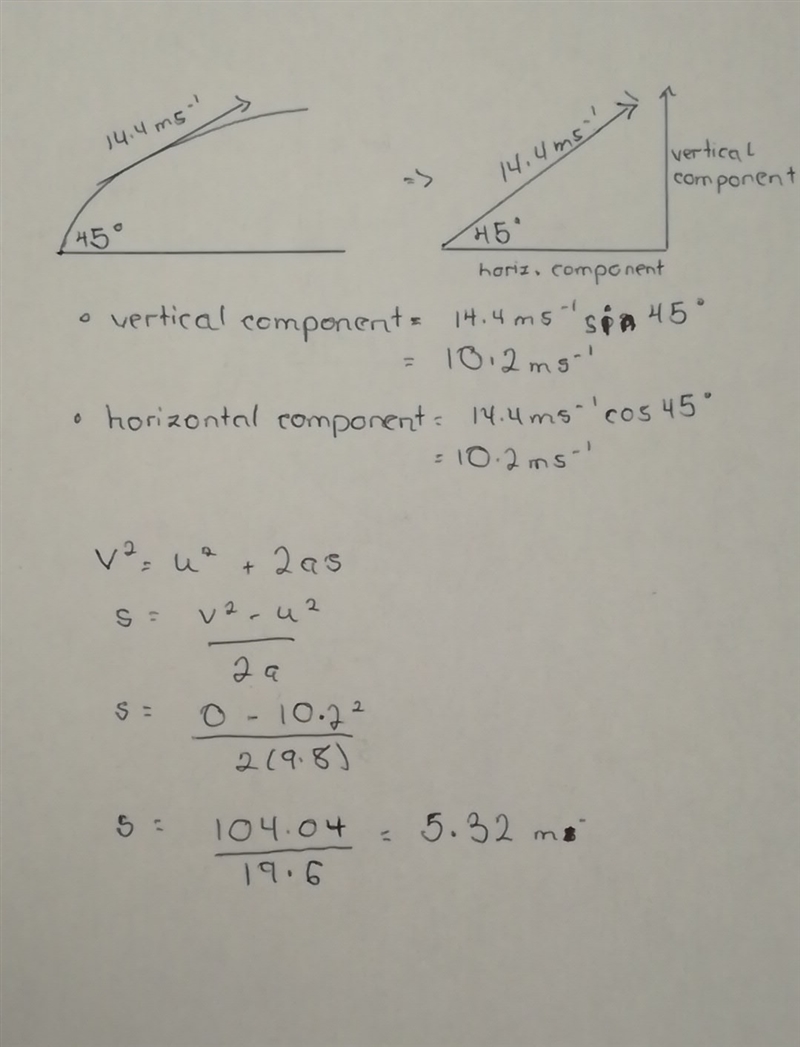 14.4 ms⁻¹
45°
=>
14.4 ms⁻¹
45°
vertical
component
horiz. component
• vertical component = 14.4 ms⁻¹ sin 45°
= 10.2 ms⁻¹
• horizontal component = 14.4 ms⁻¹ cos 45°
= 10.2 ms⁻¹
V² = u² + 2as
s = v² - u² / 2a
s = 0 - 10.2² / 2(9.8)
s = 104.04 / 19.6 = 5.32 m